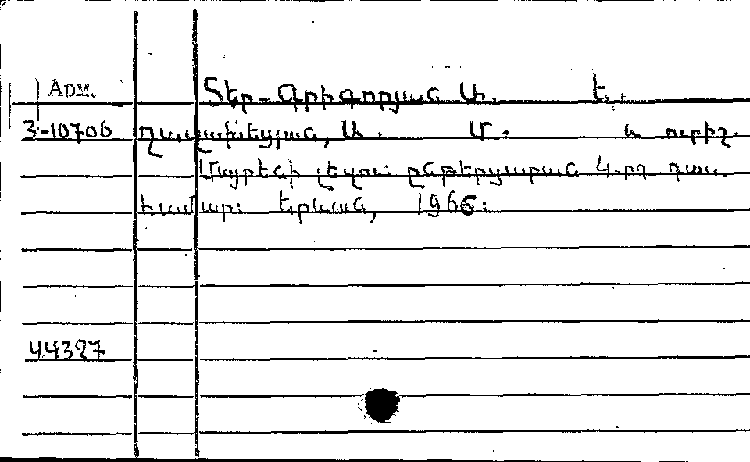 Арм. Տեր-Գրիգորյան Ա. Ե.,
3-10706 Ղազախեցյան, Ա. Մ. և ուրիշ.
Մայրենի լեզու: ընթերցարան 4-րդ դաս.
համար: Երևան, 1966:
44327